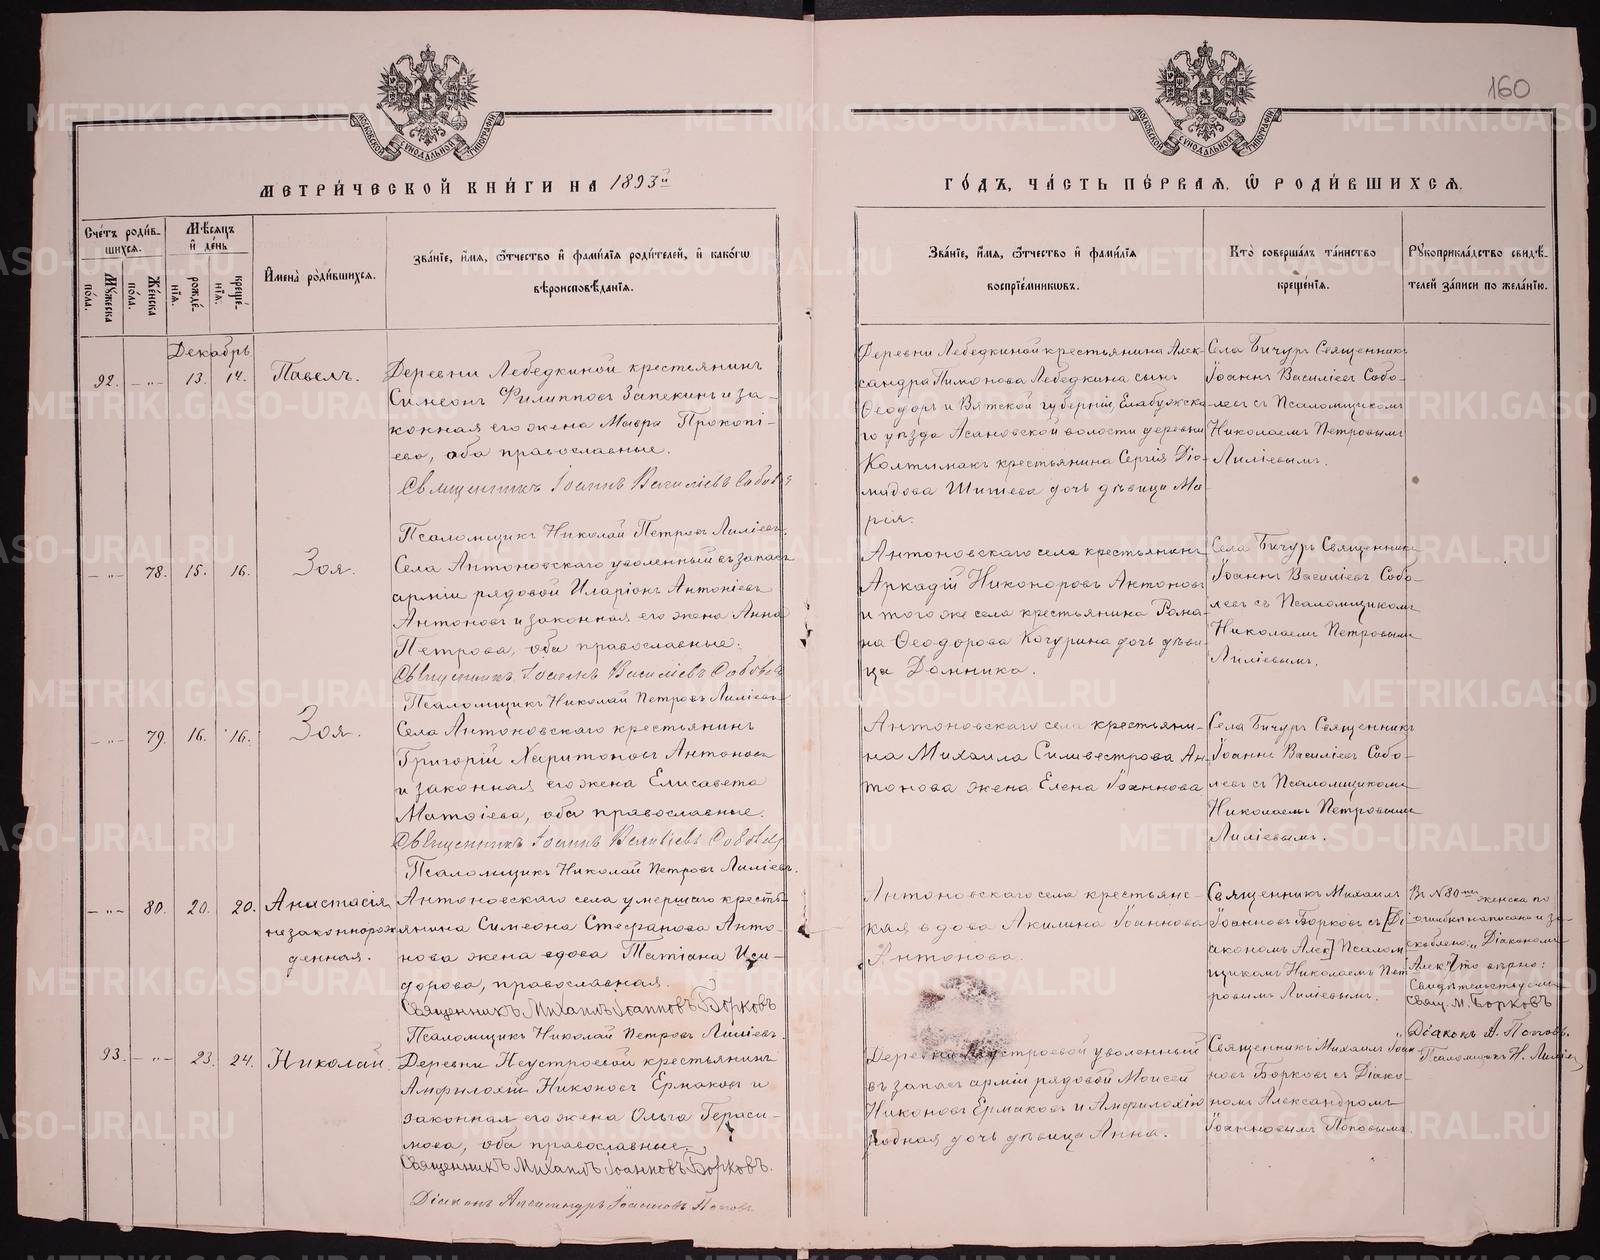 160
МОСКОВСКОЙ СѴНОДАЛЬНОЙ ТИПОГРАФІИ
МОСКОВСКОЙ СѴНОДАЛЬНОЙ ТИПОГРАФІИ
МЕТРИ́ЧЕСКОЙ КНИ́ГИ НА 1893й
ГО́ДЪ, ЧА́СТЬ ПЕ́РВАЯ, Ѿ РОДИ́ВШИХСЯ.
Сче́тъ роди́в-
шихся.
Му́жеска по́ла.
Же́нска по́ла.
Мѣ́сяцъ
и҆ де́нь
рожде́-
нїя.
креще́-
нїя.
И҆мена̀ роди́вшихся.
Зва́нїе, и҆́мя, ѻ҆́тчество и҆ фами́лїя роди́телей, и҆ како́гѡ
вѣроисповѣ́данїя.
Зва́нїе, и҆́мя, ѻ҆́тчество и҆ фами́лїя
воспрїе́мникѡвъ.
Кто̀ соверша́лъ та́инство
креще́нїя.
Рꙋкоприкла́дство свидѣ́-
телей за́писи по жела́нїю.
Декабрь
92. — „ — 13. 14.
Павелъ.
Деревни Лебедкиной крестьянинъ
Симеонъ Филипповъ Запекинъ и за-
конная его жена Мавра Прокопі-
ева, оба православные.
Священникъ Іоаннъ Васильевъ Соболев
Псаломщикъ Николай Петровъ Лиліевъ.
Деревни Лебедкиной крестьянина Алек-
сандра Пимонова Лебедкина сынъ
Ѳеодоръ и Вятской губерніи, Елабужска-
го уѣзда Асановской волости деревни
Колтымакъ крестьянина Сергія Діо-
мидова Шишева дочь дѣвица Ма-
рія.
Села Бичуръ Священникъ
Іоаннъ Василіевъ Собо-
левъ съ Псаломщикомъ
Николаемъ Петровымъ
Лиліевымъ.
— „ — 78. 15. 16.
Зоя.
Села Антоновскаго уволенный въ запасъ
арміи рядовой Иларіонъ Антоніевъ
Антоновъ и законная его жена Анна
Петрова, оба православные.
Священникъ Іоаннъ Василіевъ Соболев
Псаломщикъ Николай Петровъ Лиліевъ
Антоновскаго села крестьянинъ
Аркадій Никоноровъ Антоновъ
и того же села крестьянина Рома-
на Ѳеодорова Кочурина дочь дѣви-
ца Домника.
Села Бичуръ Священникъ
Іоаннъ Василіевъ Собо-
левъ съ Псаломщикомъ
Николаемъ Петровымъ
Лиліевымъ.
— „ — 79. 16. 16.
Зоя.
Села Антоновскаго крестьянинъ
Григорій Харитоновъ Антоновъ
и законная его жена Елисавета
Матѳіева, оба православные.
Священникъ Іоаннъ Василіевъ Соболев
Псаломщикъ Николай Петровъ Лиліевъ.
Антоновскаго села крестьяни-
на Михаила Силивестрова Ан-
тонова жена Елена Іоаннова
Села Бичуръ Священникъ
Іоаннъ Василіевъ Собо-
левъ съ Псаломщикомъ
Николаемъ Петровымъ
Лиліевымъ.
— „ — 80. 20. 20.
Анастасія
незаконнорож-
денная.
Антоновскаго села умершаго кресть-
янина Симеона Стефанова Анто-
нова жена вдова Татіана Иси-
дорова, православная.
Священникъ Михаилъ Іоанновъ Борковъ
Псаломщикъ Николай Петровъ Лиліевъ.
Антоновскаго села крестьянс-
кая вдова Акилина Іоаннова
Антонова.
Священникъ Михаилъ
Іоанновъ Борковъ съ [Ді-
акономъ Алек] Псалом-
щикомъ Николаемъ Пет-
ровымъ Лиліевымъ.
Въ № 80мъ женска по
ошибкѣ написано и за-
скоблено: „Діакономъ
Алек" что вѣрно:
Свидѣтельствуемъ
Свящ. М. Борковъ
Діаконъ А. Поповъ.
Псаломщикъ Н. Лиліев
93. — „ — 23. 24.
Николай.
Деревни Неустроевой крестьянинъ
Амфилохій Никоновъ Ермаковъ и
законная его жена Ольга Гераси-
мова, оба православные
Священникъ Михаилъ Іоанновъ Борковъ.
Діаконъ Александръ Іоанновъ Поповъ
Деревни Неустроевой уволенный
въ запасъ арміи рядовой Моисей
Никоновъ Ермаковъ и Амфилохію
родная дочь дѣвица Анна.
Священникъ Михаилъ Іоан-
новъ Борковъ съ Діако-
номъ Александромъ
Іоанновымъ Поповымъ.
METRIKI.GASO-URAL.RU